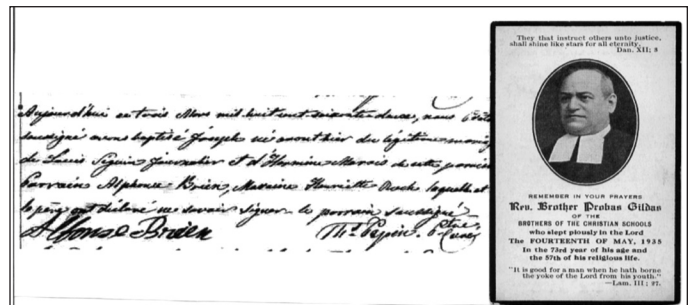 Aujourd'hui ce trois Mars mil huit cent soixante douze, nous Ptre
soussigné avons baptisé Joseph né avant hier du légitime mariage
de Louis Séguin Journalier et d'Hermine Marois de cette paroisse
Parrain Alphonse Brien, Maraine Henriette Roch laquelle et
le père ont déclaré ne savoir signer le parrain soussigné.
Alfonse Brien Ths. Pepin Ptre
Curé
They that instruct others unto justice,
shall shine like stars for all eternity.
Dan. XII; 3
REMEMBER IN YOUR PRAYERS
Rev. Brother Probus Gildas
OF THE
BROTHERS OF THE CHRISTIAN SCHOOLS
who slept piously in the Lord
The FOURTEENTH OF MAY, 1935
In the 73rd year of his age and
the 57th of his religious life.
"It is good for a man when he hath borne
the yoke of the Lord from his youth."
—Lam. III; 27.